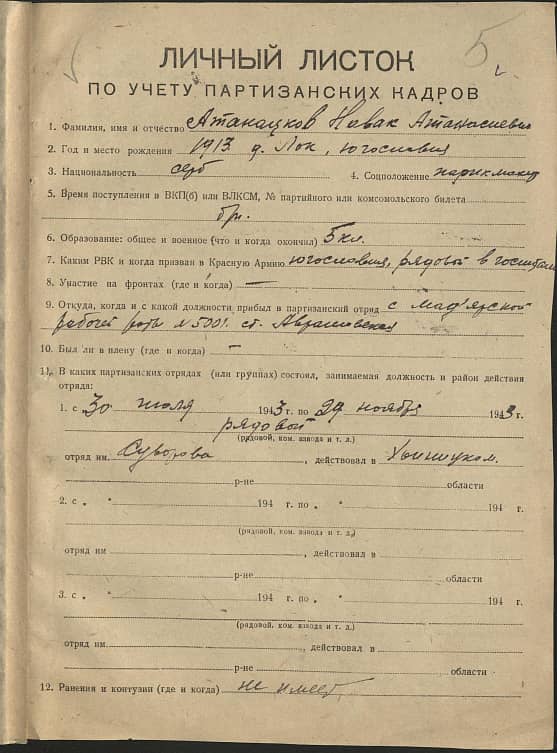 5
ЛИЧНЫЙ ЛИСТОК
ПО УЧЕТУ ПАРТИЗАНСКИХ КАДРОВ
1. Фамилия, имя и отчество Атанацков Новак Атанасиевич
2. Год и место рождения 1913 д. Лок, Югославия
3. Национальность серб 4. Соцположение парикмахер
5. Время поступления в ВКП(б) или ВЛКСМ, № партийного или комсомольского билета
б/п.
6. Образование: общее и военное (что и когда окончил) 5 кл.
7. Каким РВК и когда призван в Красную Армию Югославия, рядовой в госпитале
8. Участие на фронтах (где и когда) —
9. Откуда, когда и с какой должности прибыл в партизанский отряд с мадьярской
рабочей роты №5001. ст.
10. Был ли в плену (где и когда) —
11. В каких партизанских отрядах (или группах) состоял, занимаемая должность и район действия
отряда:
1. с 30 июля 1943 г. по 29 ноября 1943 г.
рядовой
(рядовой, ком. взвода и т. д.)
отряд им. Суворова, действовал в
р-не области
2. с „ " 194 г. по „ " 194 г.
(рядовой, ком. взвода и т. д.)
отряд им , действовал в
р-не области
3. с „ " 194 г. по „ " 194 г.
(рядовой, ком. взвода и т. д.)
отряд им: , действовал в
р-не области
12. Ранения и контузии (где и когда) не имеет